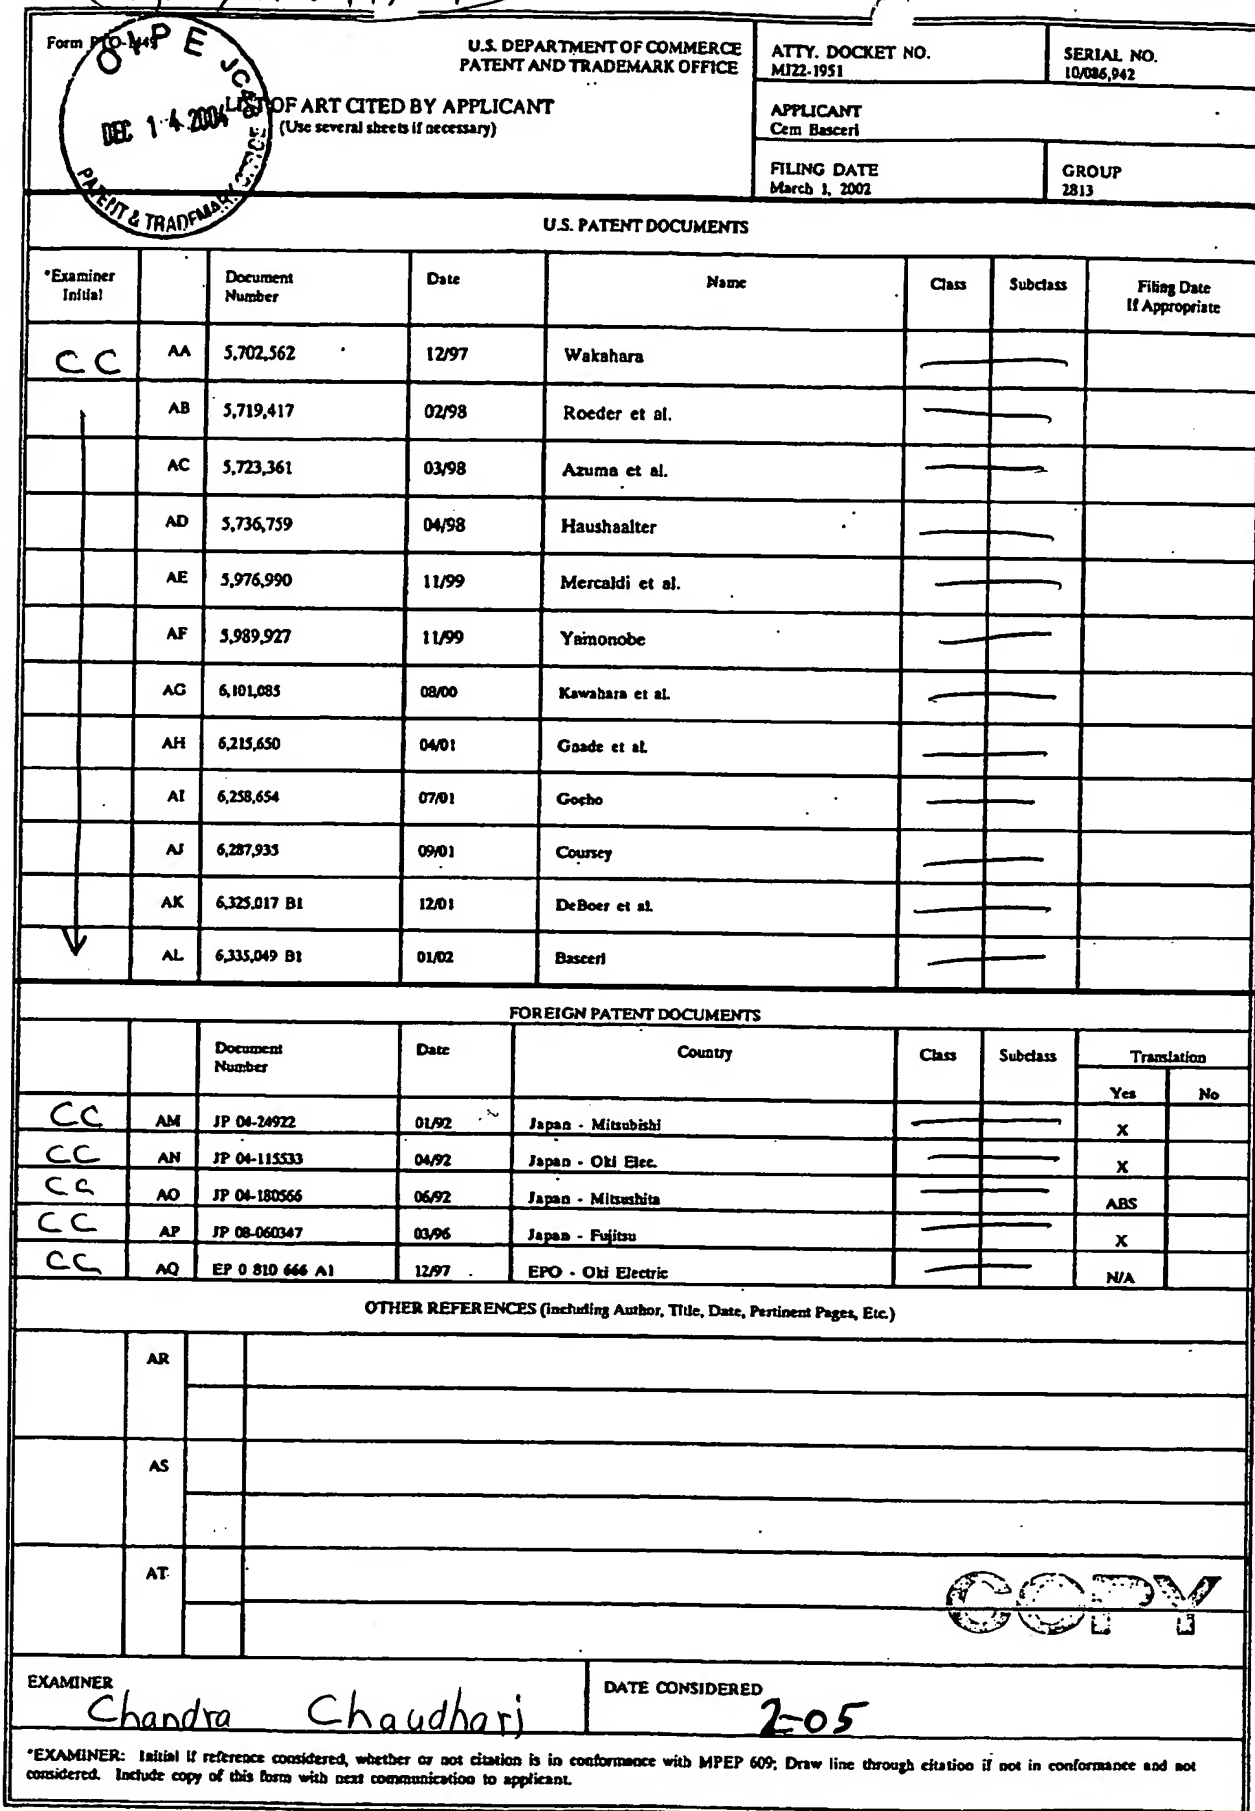 Form PTO-1449
U.S. DEPARTMENT OF COMMERCE
PATENT AND TRADEMARK OFFICE
LIST OF ART CITED BY APPLICANT
(Use several sheets if necessary)
OIPE
DEC 14 2004
PATENT & TRADEMARK OFFICE
ATTY. DOCKET NO.
MI22-1951
SERIAL NO.
10/086,942
APPLICANT
Cem Basceri
FILING DATE
March 1, 2002
GROUP
2813
U.S. PATENT DOCUMENTS
*Examiner Initial Document Number Date Name Class Subclass Filing Date If Appropriate
CC AA 5,702,562 12/97 Wakahara
AB 5,719,417 02/98 Roeder et al.
AC 5,723,361 03/98 Azuma et al.
AD 5,736,759 04/98 Haushaalter
AE 5,976,990 11/99 Mercaldi et al.
AF 5,989,927 11/99 Yamonobe
AG 6,101,085 08/00 Kawahara et al.
AH 6,215,650 04/01 Gnade et al.
AI 6,258,654 07/01 Gocho
AJ 6,287,935 09/01 Coursey
AK 6,325,017 B1 12/01 DeBoer et al.
AL 6,335,049 B1 01/02 Basceri
FOREIGN PATENT DOCUMENTS
Document Number Date Country Class Subclass Translation
Yes No
CC AM JP 04-24922 01/92 Japan - Mitsubishi X
CC AN JP 04-115533 04/92 Japan - Oki Elec. X
CC AO JP 04-180566 06/92 Japan - Mitsushita ABS
CC AP JP 08-060347 03/96 Japan - Fujitsu X
CC AQ EP 0 810 666 A1 12/97 EPO - Oki Electric N/A
OTHER REFERENCES (including Author, Title, Date, Pertinent Pages, Etc.)
AR
AS
AT
COPY
EXAMINER
Chandra Chaudhari
DATE CONSIDERED
2-05
*EXAMINER: Initial if reference considered, whether or not citation is in conformance with MPEP 609; Draw line through citation if not in conformance and not
considered. Include copy of this form with next communication to applicant.